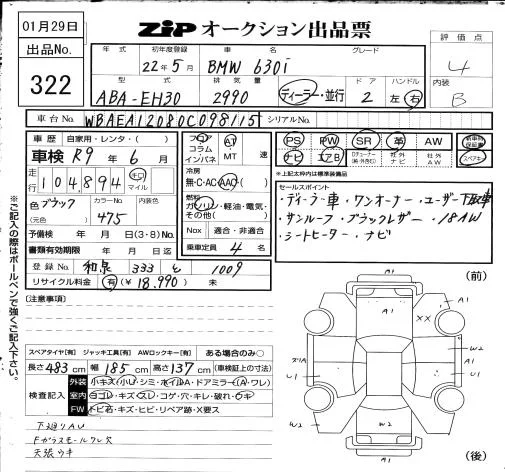 01月29日
ZIP オークション出品票
出品No.
322
年式 初年度登録 車名 グレード
22年5月 BMW 630i
型式 排気量 ドア ハンドル
ABA-EH30 2990 ディーラー・並行 2 左 右
評価点
4
内装
B
車台No. WBAEA12080C098115 シリアルNo.
車歴 自家用・レンタ・( )
車検 R9年6月
走行 104,894 キロ マイル
色 ブラック カラーNo. 475 内装色
(元色)
予備検 年 月 日(3・8)No.
書類有効期限 年 月 日迄
登録No. 和泉 333 1009
リサイクル料金 有(¥18,990) 未
フロア コラム インパネ
AT MT 速
冷房
無・C・AC・AAC・( )
燃料
ガソリン・軽油・電気・その他( )
Nox 適合・非適合
乗車定員 4 名
PS PW SR 革 AW
ナビ エアB 社外ナビ 社外AW
新車時保証書
スペアキー
*上記太枠内は標準装備品
セールスポイント
・ディーラー車・ワンオーナー・ユーザー下取車
・サンルーフ・ブラックレザー・18AW
・シートヒーター・ナビ
※ご記入の際はボールペンで強くご記入下さい。
[注意事項]
スペアタイヤ[有] ジャッキ工具[有] AWロックキー[有] ある場合のみ○
長さ483cm 幅185cm 高さ137cm(車検証上の寸法)
検査記入
外装 小キズ・小U・シミ・ホイルA・ドアミラー(A・ワレ)
室内 ヨゴレ・キズ・スレ・コゲ・穴・キレ・破れ・ウキ
FW トビ石・キズ・ヒビ・リペア跡・X要ス
下廻りAU
Fガラスモールワレ欠
天張ウキ
(前)
A1
A1
A1
XX
ズリA
U1
W2
U1
A1
W2
W2
A1
(後)